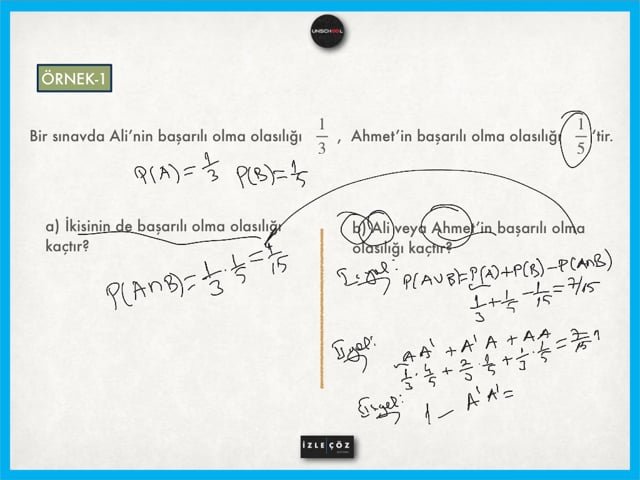 UNSCHOOL
ÖRNEK-1
Bir sınavda Ali'nin başarılı olma olasılığı 1/3 , Ahmet'in başarılı olma olasılığı 1/5 'tir.
P(A)=1/3 P(B)=1/5
a) İkisinin de başarılı olma olasılığı
kaçtır?
P(A∩B)=1/3.1/5=1/15
b) Ali veya Ahmet'in başarılı olma
olasılığı kaçtır?
I.yol: P(A∪B)=P(A)+P(B)-P(A∩B)
1/3+1/5-1/15=7/15
II.yol: AA'+A'A+AA
1/3.4/5+2/3.1/5+1/3.1/5=7/15
1-A'A'=
İZLE ÇÖZ